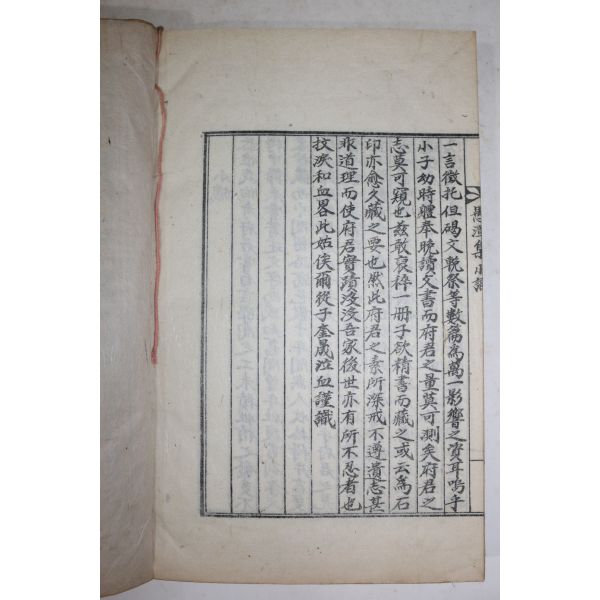 一言徵托但碣文輓祭等數篇爲萬一影響之資耳嗚乎
小子幼時軆奉晩讀父書而府君之量莫可測矣府君之
志莫可窺也玆敢裒稡一冊子欲精書而藏之或云爲石
印亦愈久藏之要也然此府君之素所深戒不遵遺志甚
非道理而使府君實蹟沒沒吾家後世亦有所不忍者也
抆淚和血畧此姑俟爾從子奎晟泣血謹識